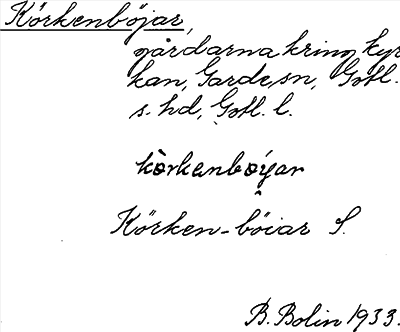 Körkenböjar,
gårdarna kring kyr
kan, Garde sn, Gotl.
s. hd, Gotl. l.
kòrkenbøyar
Körken-böiar S.
B. Bolin 1933.